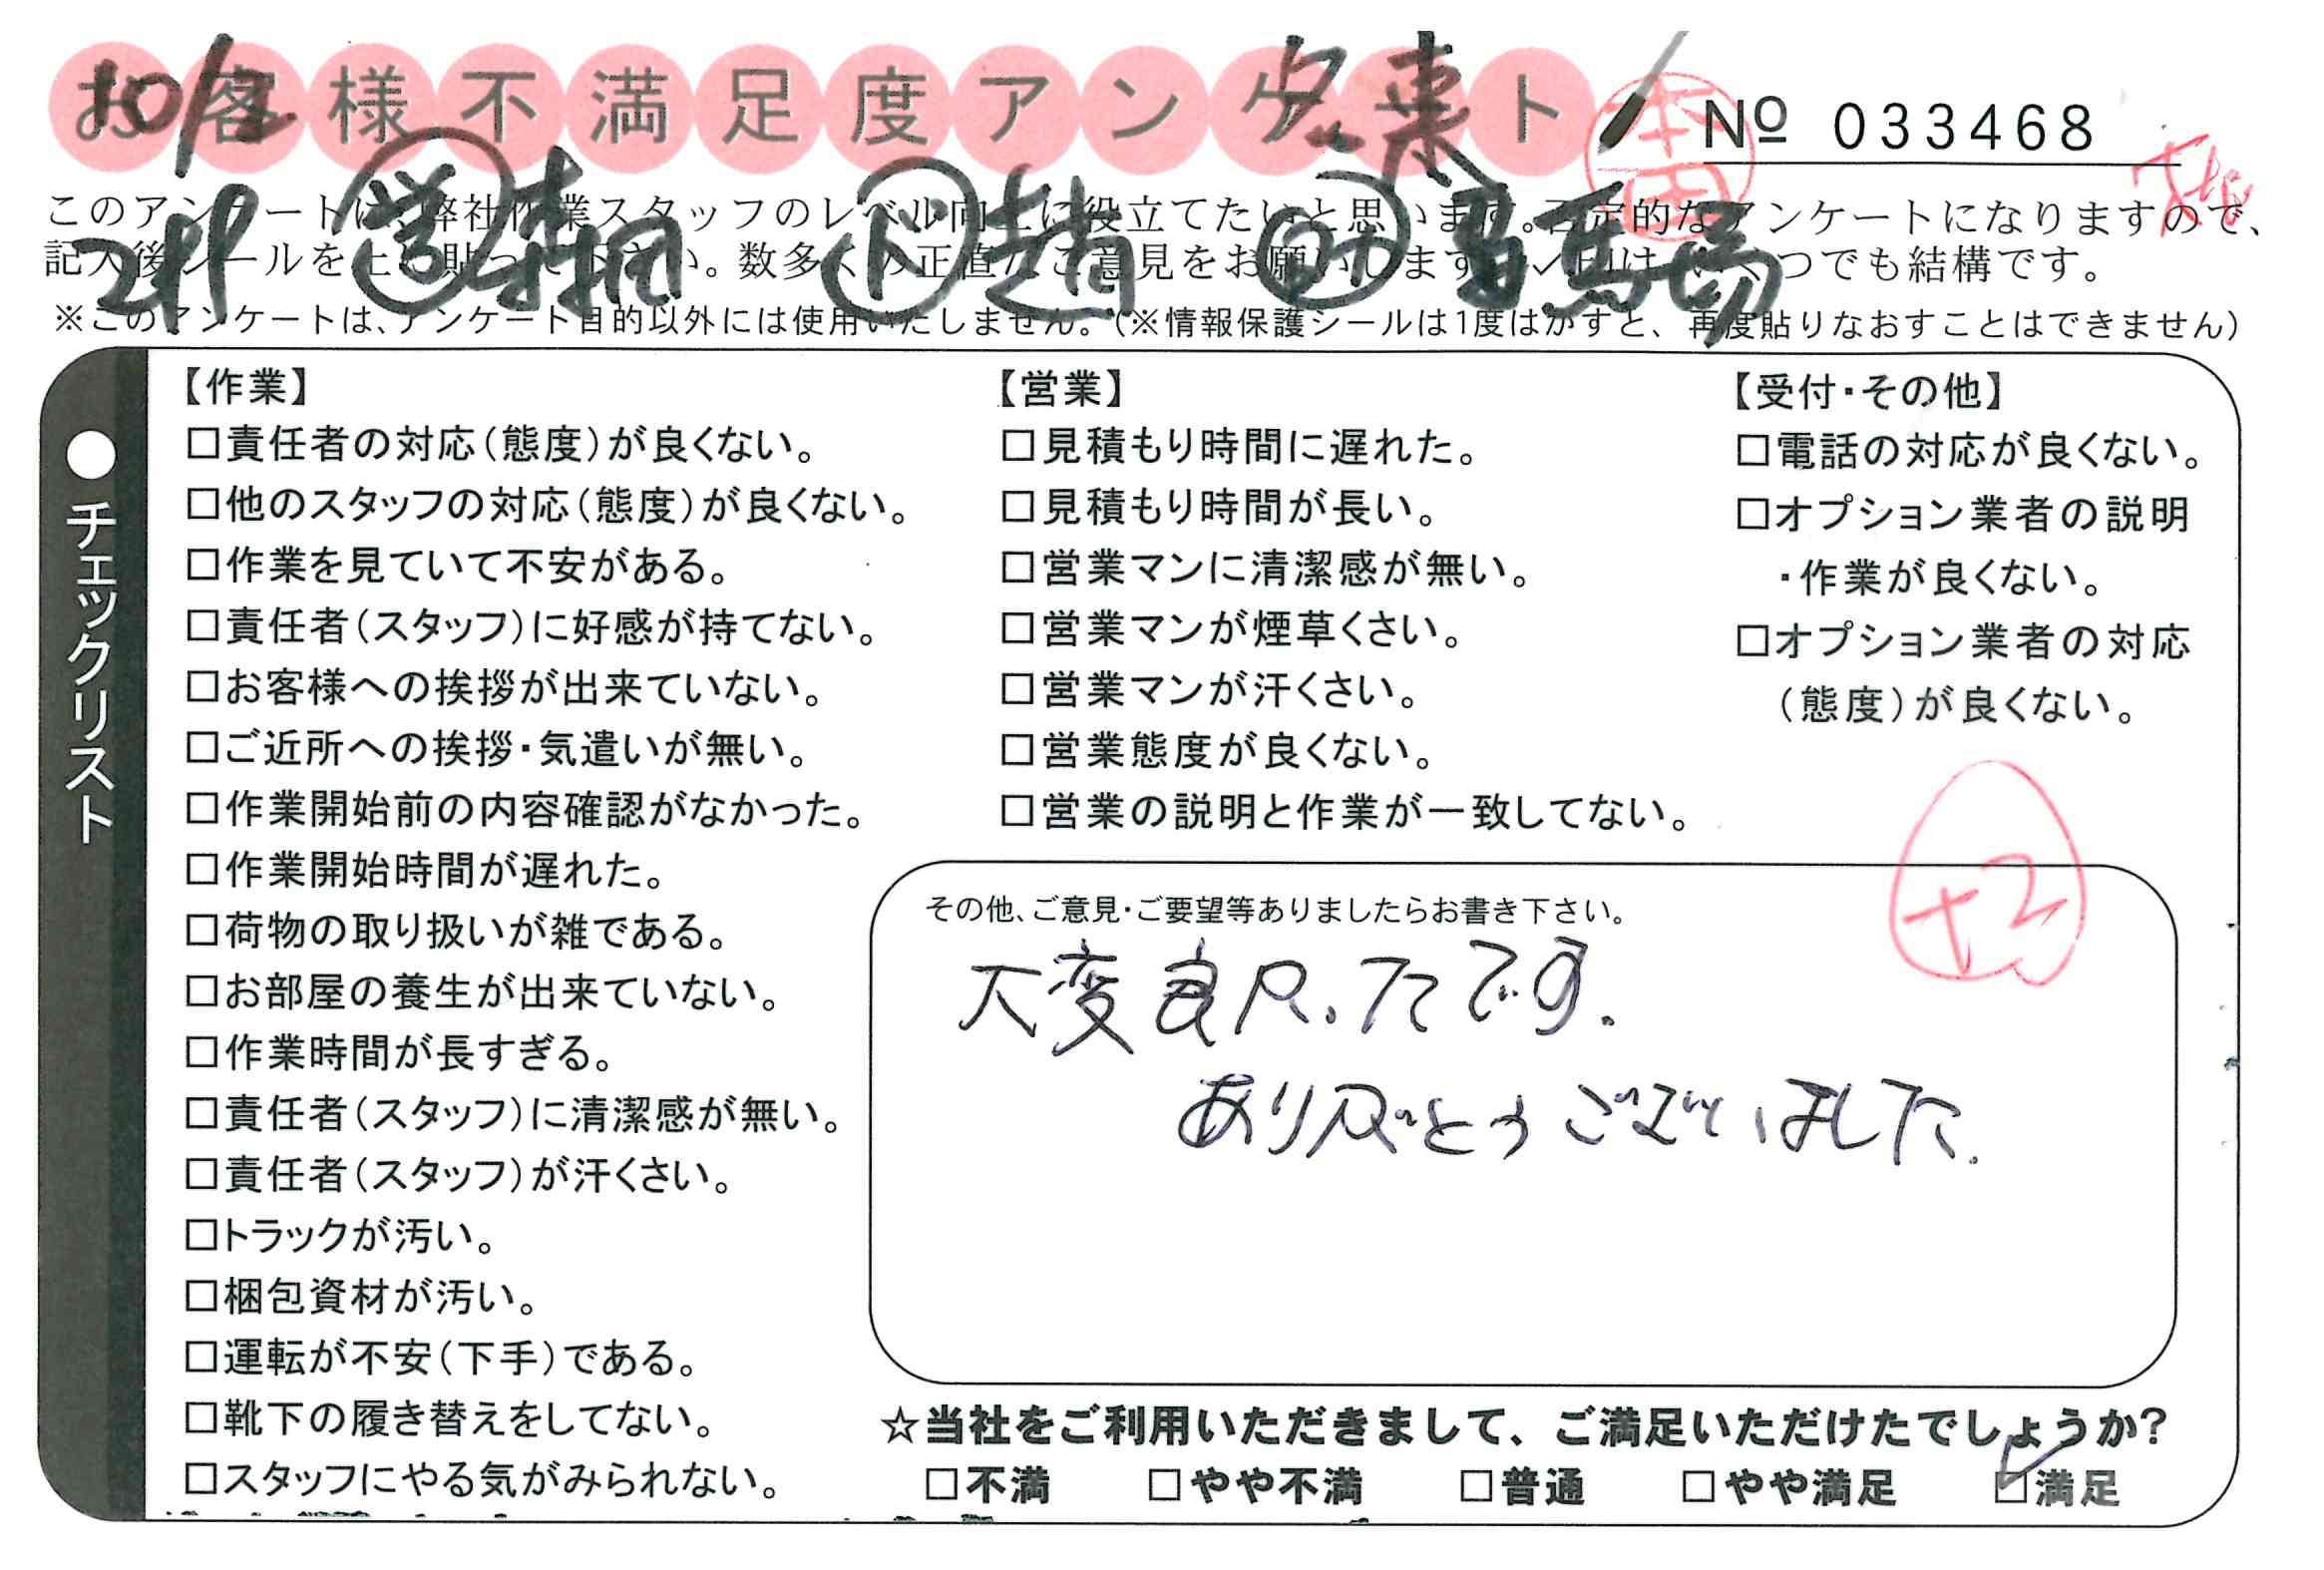 お客様不満足度アンケート
10/2
本田
№ 033468
このアンケートは、弊社作業スタッフのレベル向上に役立てたいと思います。否定的なアンケートになりますので、
記入後シールを上に貼って下さい。数多くの正直なご意見をお願いします。
いくつでも結構です。
営 森田
ド 趙
馬場
※このアンケートは、アンケート目的以外には使用いたしません。(※情報保護シールは1度はがすと、再度貼りなおすことはできません)
●チェックリスト
【作業】
□責任者の対応(態度)が良くない。
□他のスタッフの対応(態度)が良くない。
□作業を見ていて不安がある。
□責任者(スタッフ)に好感が持てない。
□お客様への挨拶が出来ていない。
□ご近所への挨拶・気遣いが無い。
□作業開始前の内容確認がなかった。
□作業開始時間が遅れた。
□荷物の取り扱いが雑である。
□お部屋の養生が出来ていない。
□作業時間が長すぎる。
□責任者(スタッフ)に清潔感が無い。
□責任者(スタッフ)が汗くさい。
□トラックが汚い。
□梱包資材が汚い。
□運転が不安(下手)である。
□靴下の履き替えをしてない。
□スタッフにやる気がみられない。
【営業】
□見積もり時間に遅れた。
□見積もり時間が長い。
□営業マンに清潔感が無い。
□営業マンが煙草くさい。
□営業マンが汗くさい。
□営業態度が良くない。
□営業の説明と作業が一致してない。
【受付・その他】
□電話の対応が良くない。
□オプション業者の説明
・作業が良くない。
□オプション業者の対応
(態度)が良くない。
+2
その他、ご意見・ご要望等ありましたらお書き下さい。
大変良かったです。
ありがとうございました。
☆当社をご利用いただきまして、ご満足いただけたでしょうか?
□不満 □やや不満 □普通 □やや満足 ☑満足